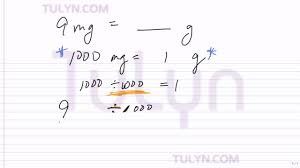 TULYN.COM
9 mg = ___ g
* 1000 mg = 1 g *
1000 ÷ 1000 = 1
TULYN
9 ÷ 1000
TULYN.COM